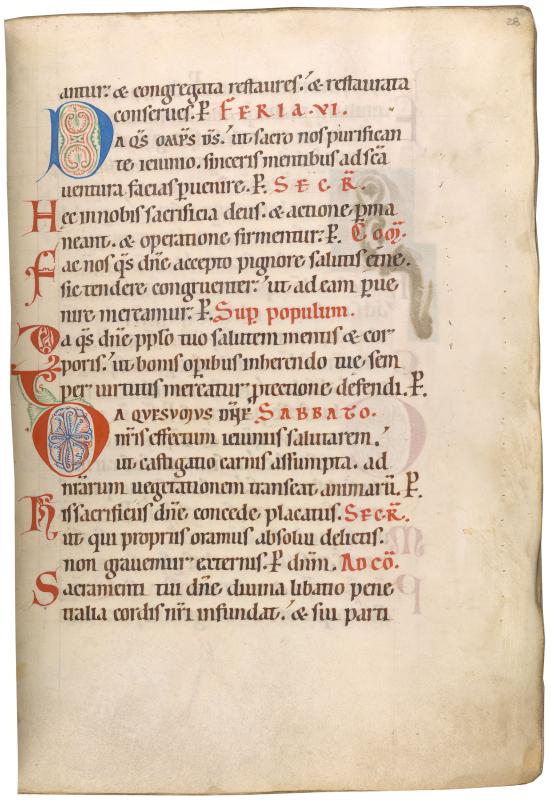 28
antur: & congregata restaures. & restaurata
conserues. P FERIA.VI.
DA QS OMPS DS. ut sacro nos purifican
te ieiunio. sinceris mentibus ad scā
uentura facias puenire. P. SECR̄.
Hec in nobis sacrificia deus. & actione pma
neant. & operatione firmentur. P. Com̄.
Fac nos q̄s dn̄e accepto pignore salutis etn̄e.
sic tendere congruenter. ut ad eam pue
nire mereamur. P. Sup populum.
Da q̄s dn̄e pplo tuo salutem mentis & cor
poris. ut bonis opibus inherendo tue sem
per uirtutis mereatur ptectione defendi. P.
TUA QVESVMVS DN̄E SABBATO.
nr̄is effectum ieiuniis salutarem.
ut castigatio carnis assumpta. ad
nr̄arum uegetationem transeat animarū. P.
His sacrificiis dn̄e concede placatus. SECR̄.
ut qui propriis oramus absolui delictis.
non grauemur externis. P dnm̄. AD CŌ.
Sacramenti tui dn̄e diuina libatio pene
tralia cordis nr̄i infundat. & sui parti